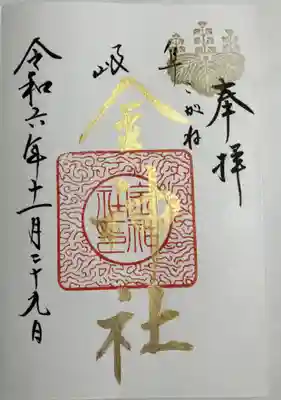 奉拝
美濃国
こがね
岐阜
金神社
金神社印
令和六年十一月二十九日